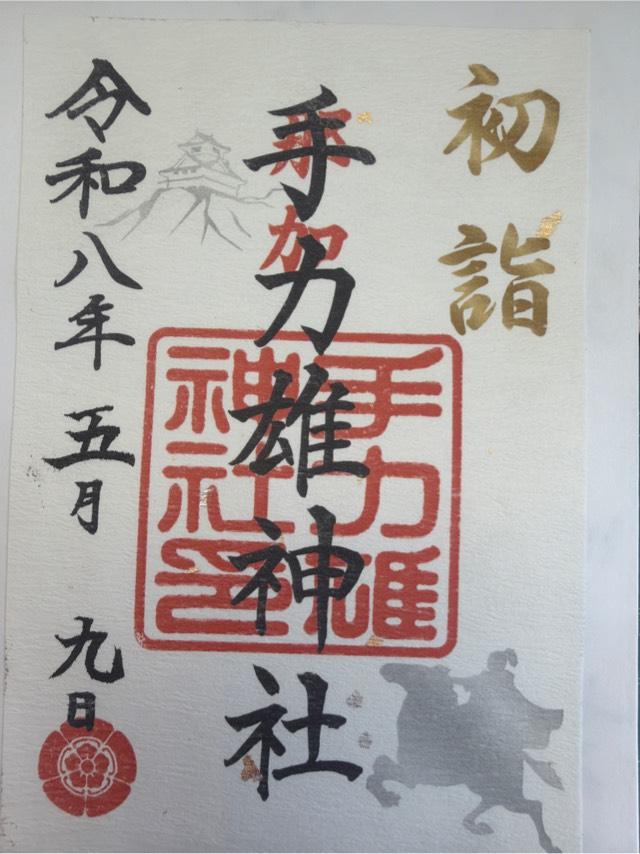 初詣
手力雄神社
那加
手力雄
神社印
令和八年五月九日